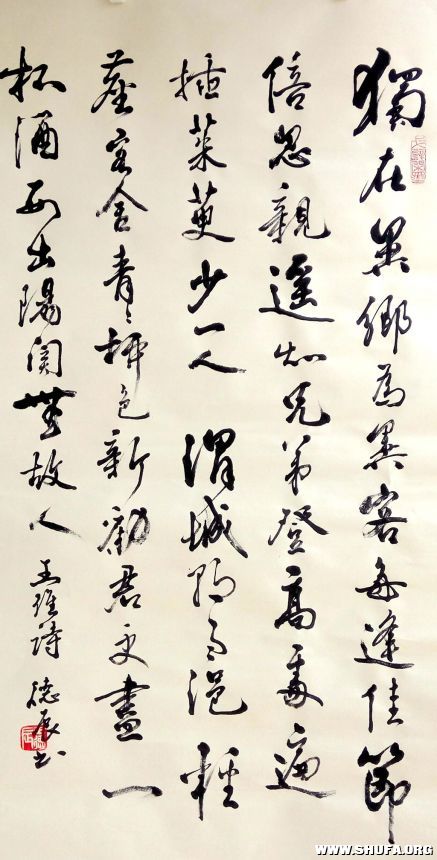 獨在異鄉為異客每逢佳節
倍思親遥知兄弟登高處遍
插茱萸少一人 渭城朝雨浥輕
塵客舍青〻柳色新勸君更盡一
杯酒西出陽關無故人 王維詩 德书
WWW.SHUFA.ORG